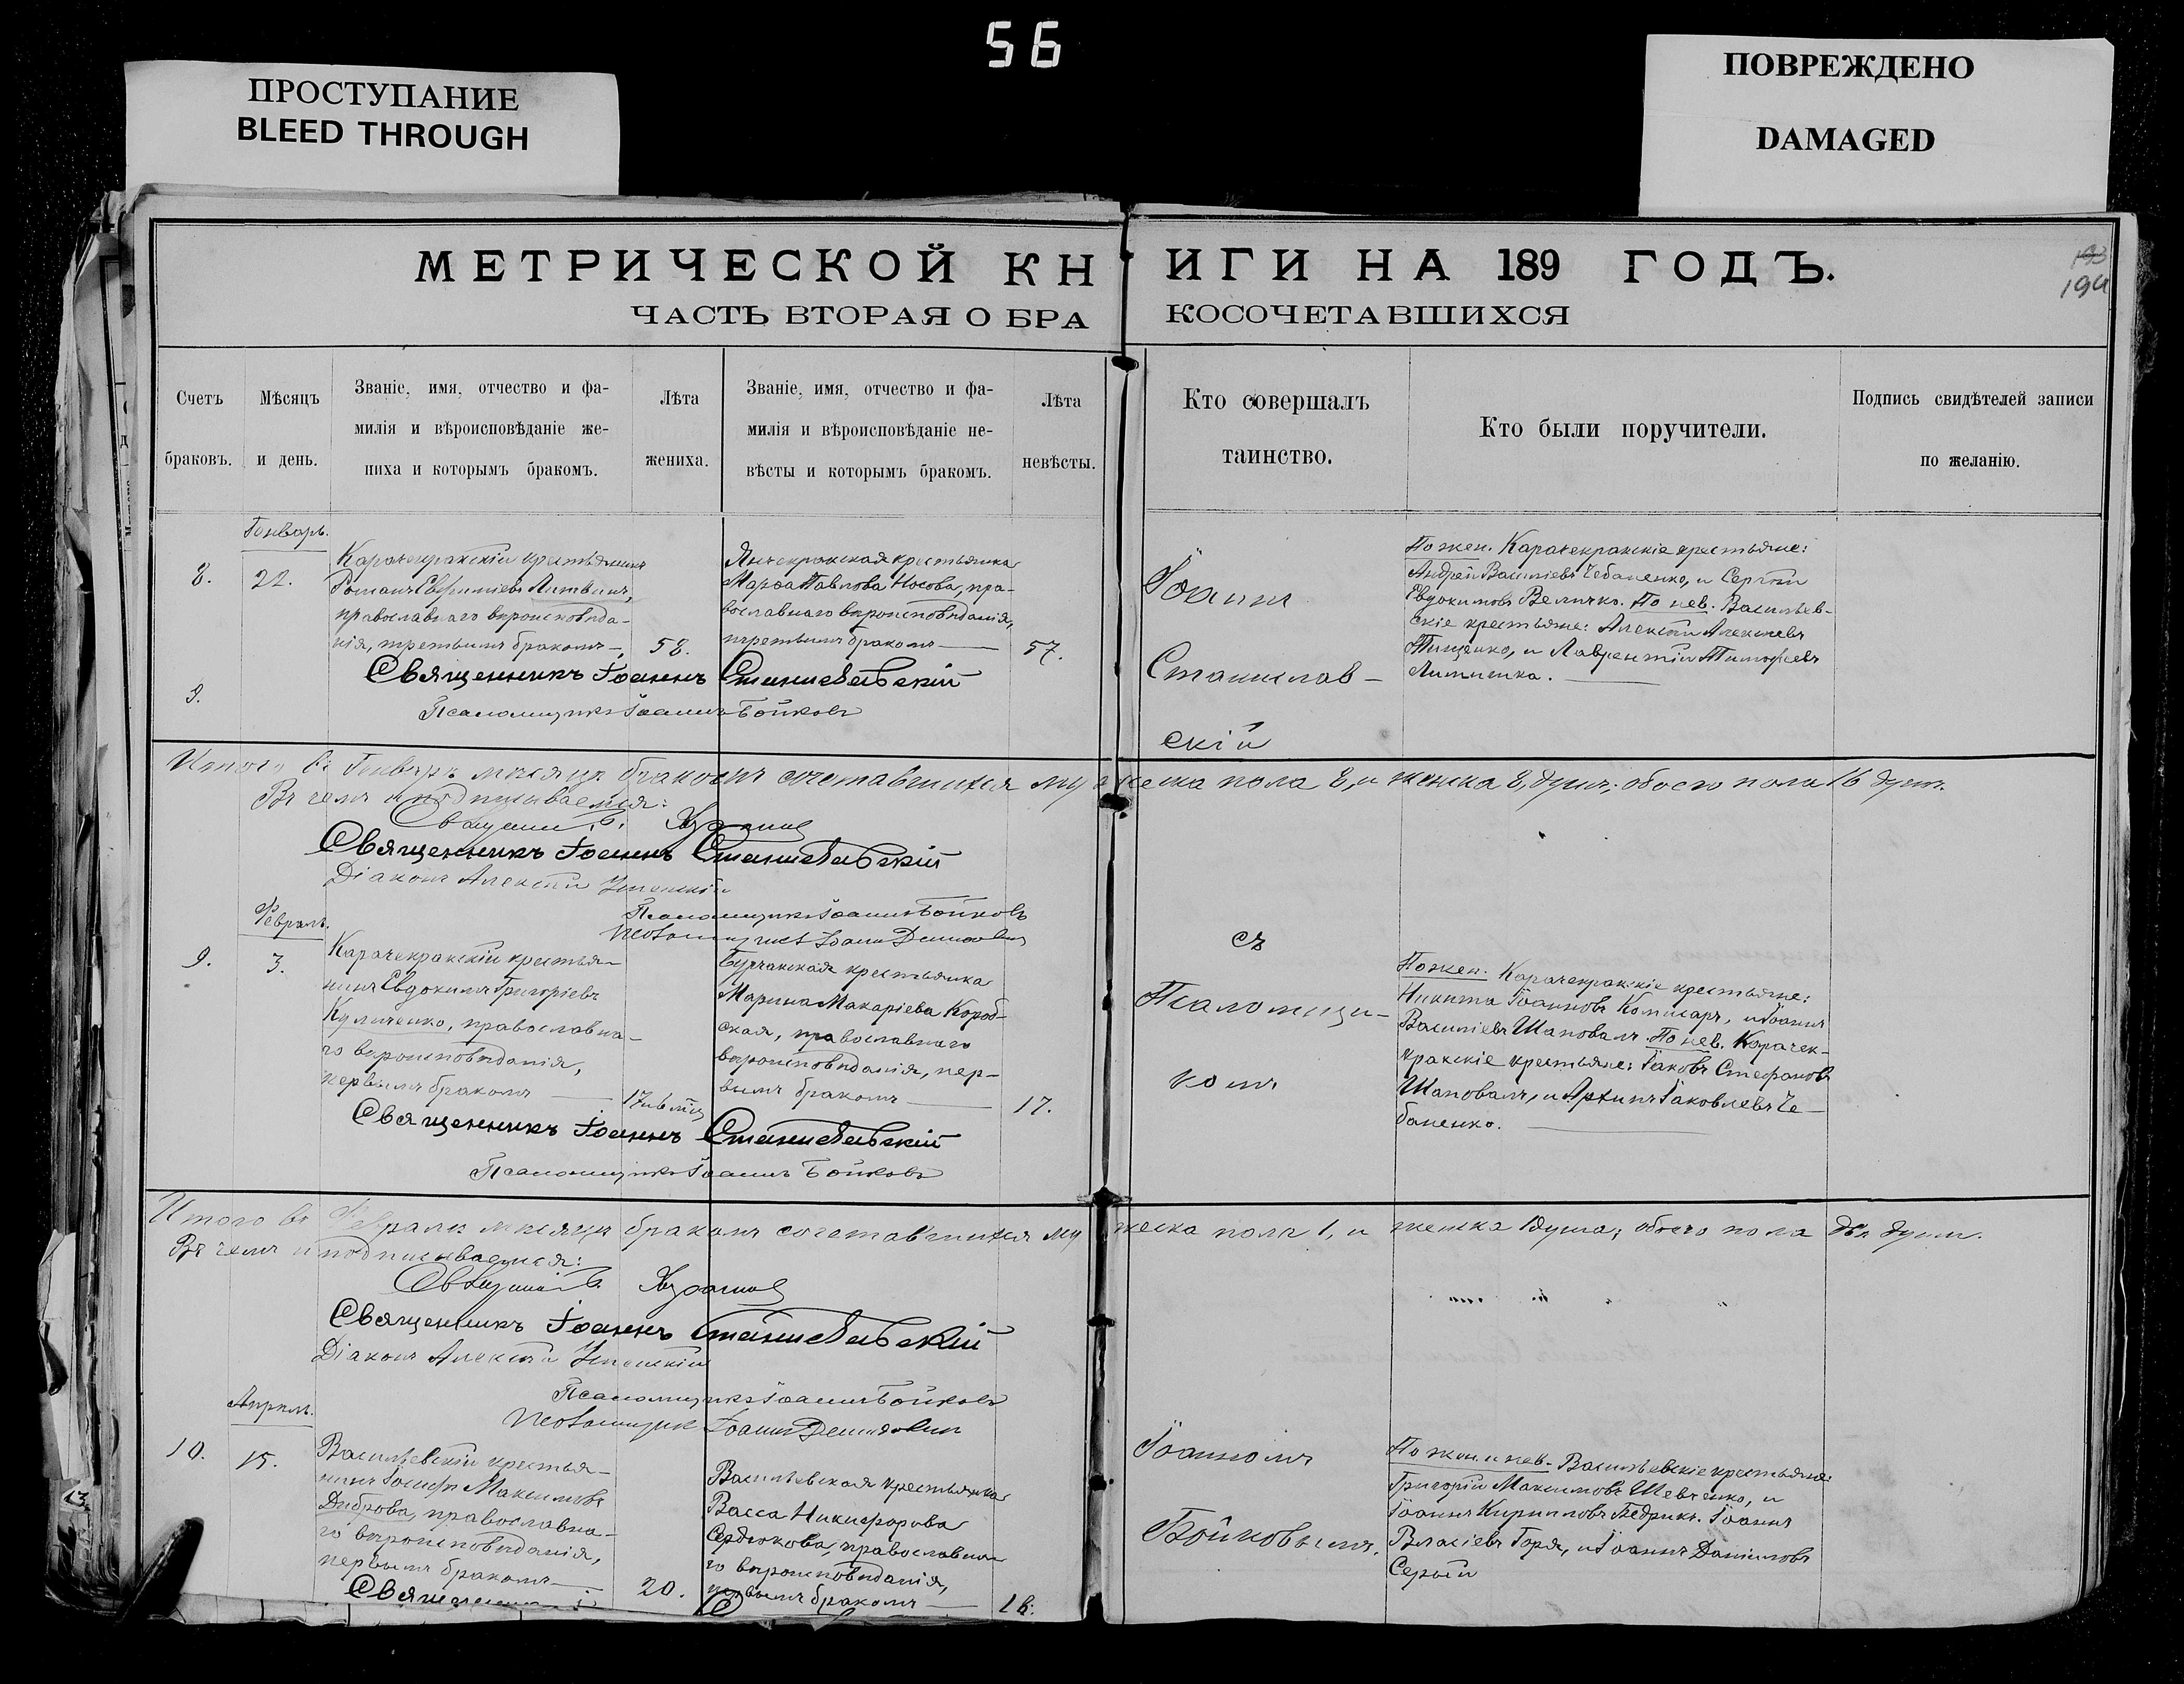 56
ПРОСТУПАНИЕ
BLEED THROUGH
ПОВРЕЖДЕНО
DAMAGED
МЕТРИЧЕСКОЙ КНИГИ НА 189 ГОДЪ.
193
194
ЧАСТЬ ВТОРАЯ О БРАКОСОЧЕТАВШИХСЯ
Счетъ
браковъ.
Мѣсяцъ
и день.
Званіе, имя, отчество и фа-
милія и вѣроисповѣданіе же-
ниха и которымъ бракомъ.
Лѣта
жениха.
Званіе, имя, отчество и фа-
милія и вѣроисповѣданіе не-
вѣсты и которымъ бракомъ.
Лѣта
невѣсты.
Кто совершалъ
таинство.
Кто были поручители.
Подпись свидѣтелей записи
по желанію.
Генварь.
8.
22.
Карачекракскій крестьянинъ
Романъ Евфиміевъ Литвинъ,
православнаго вѣроисповѣда-
нія, третьимъ бракомъ
58.
Янчекракская крестьянка
Марѳа Павлова Носова, пра-
вославнаго вѣроисповѣданія,
третьимъ бракомъ
57.
Священникъ Іоаннъ Станиславскій
9.
Псаломщикъ Іоаннъ Бойковъ
Іоаннъ
Станислав-
скій
По жен. Карачекракскіе крестьяне:
Андрей Василіевъ Чебаненко, и Сергѣй
Евдокимовъ Величко. По нев. Васильев-
скіе крестьяне: Алексѣй Алексѣевъ
Тищенко, и Лаврентій Тимофеевъ
Итого въ Генварѣ мѣсяцѣ бракомъ сочетавшихся мужеска пола 8, и женска 8, душъ; обоего пола 16 душъ.
Въ чемъ и подписываемся:
Священникъ Іоаннъ Станиславскій
Діаконъ Алексѣй
Псаломщикъ Іоаннъ Бойковъ
Псаломщикъ Іоаннъ
Февраль.
9.
3.
Карачекракскій крестья-
нинъ Евдокимъ Григоріевъ
Куличенко, православна-
го вѣроисповѣданія,
первымъ бракомъ
17 и 6 мѣс
Бурчакская крестьянка
Марина Макаріева Короб-
ская, православнаго
вѣроисповѣданія, пер-
вымъ бракомъ
17.
Священникъ Іоаннъ Станиславскій
Псаломщикъ Іоаннъ Бойковъ
съ
Псаломщи-
комъ
По жен. Карачекракскіе крестьяне:
Никита Іоанновъ Комисаръ, и Іоаннъ
Василіевъ Шаповалъ. По нев. Карачек-
кракскіе крестьяне: Іаковъ Стефановъ
Шаповалъ, и Архипъ Іаковлевъ Че-
баненко.
Итого въ Февралѣ мѣсяцѣ бракомъ сочетавшихся мужеска пола 1, и женска 1 душа; обоего пола двѣ души.
Въ чемъ и подписываемся:
Священникъ Іоаннъ Станиславскій
Діаконъ Алексѣй
Псаломщикъ Іоаннъ Бойковъ
Псаломщикъ Іоаннъ
Апрѣль.
10.
15.
Васильевскій крестья-
нинъ Іосифъ Максимовъ
Диброва, православна-
го вѣроисповѣданія,
первымъ бракомъ
20.
Васильевская крестьянка
Васса Никифорова
Сердюкова, православна-
го вѣроисповѣданія,
первымъ бракомъ
Священникъ
Іоанномъ
Бойковымъ.
По жен. и нев. Васильевскіе крестьяне:
Григорій Максимовъ Шевченко, и
Іоаннъ Кирилловъ Бедрикъ. Іоаннъ
Власіевъ Горя, и Іоаннъ Даніиловъ
Серый